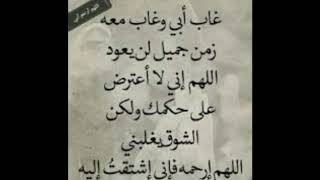 غاب أبي وغاب معه
زمن جميل لن يعود
اللهم إني لا أعترض
على حكمك ولكن
الشوق يغلبني
اللهم إرحمه فإني إشتقتُ إليه